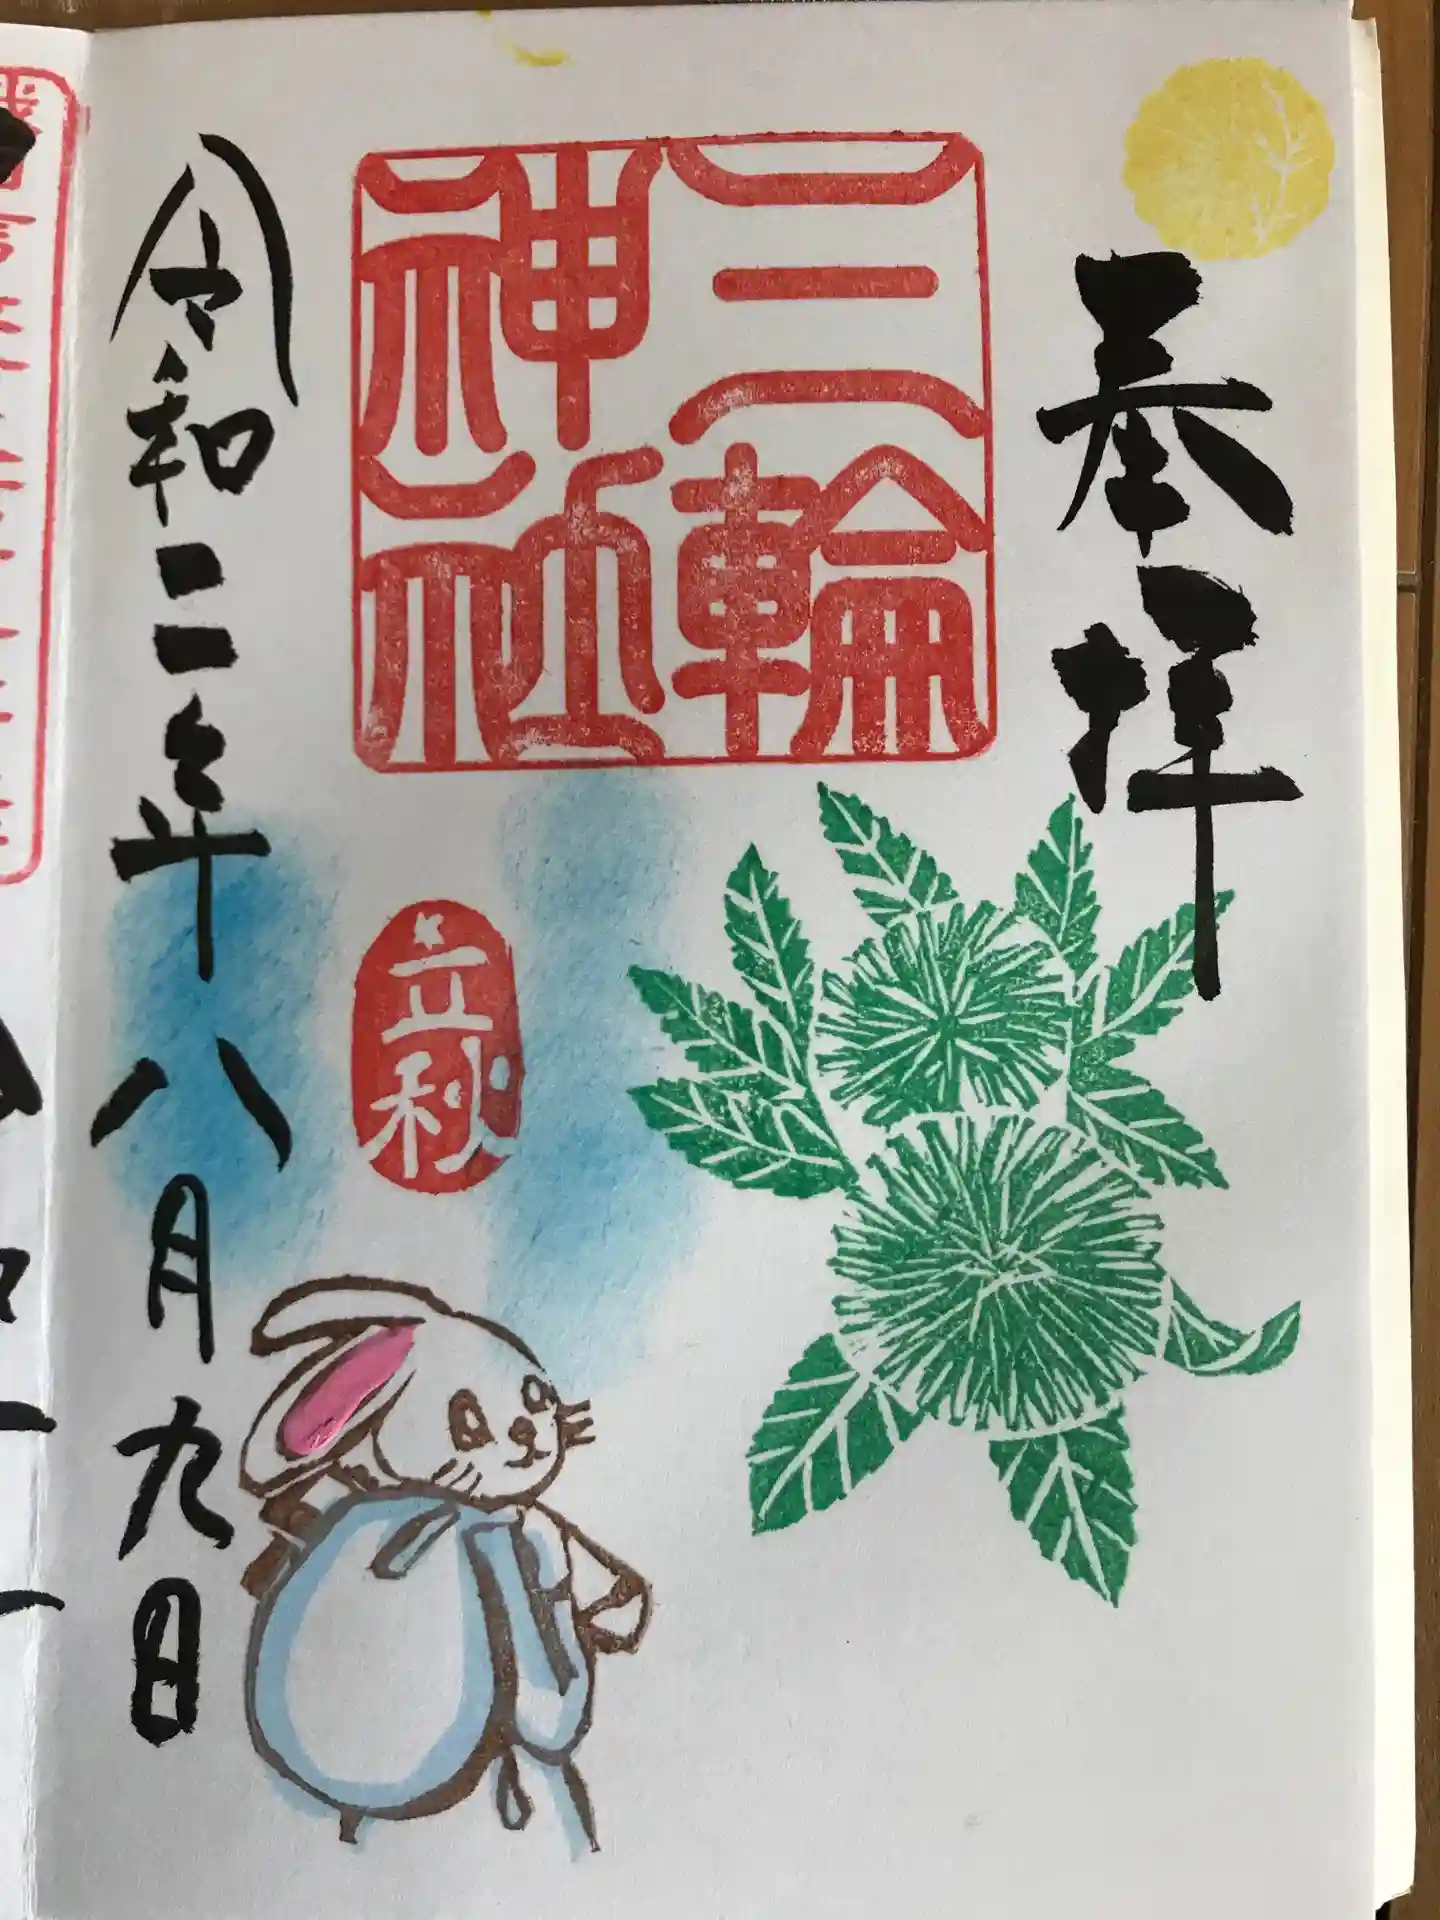 奉拝
三輪
神社
立秋
令和二年八月九日